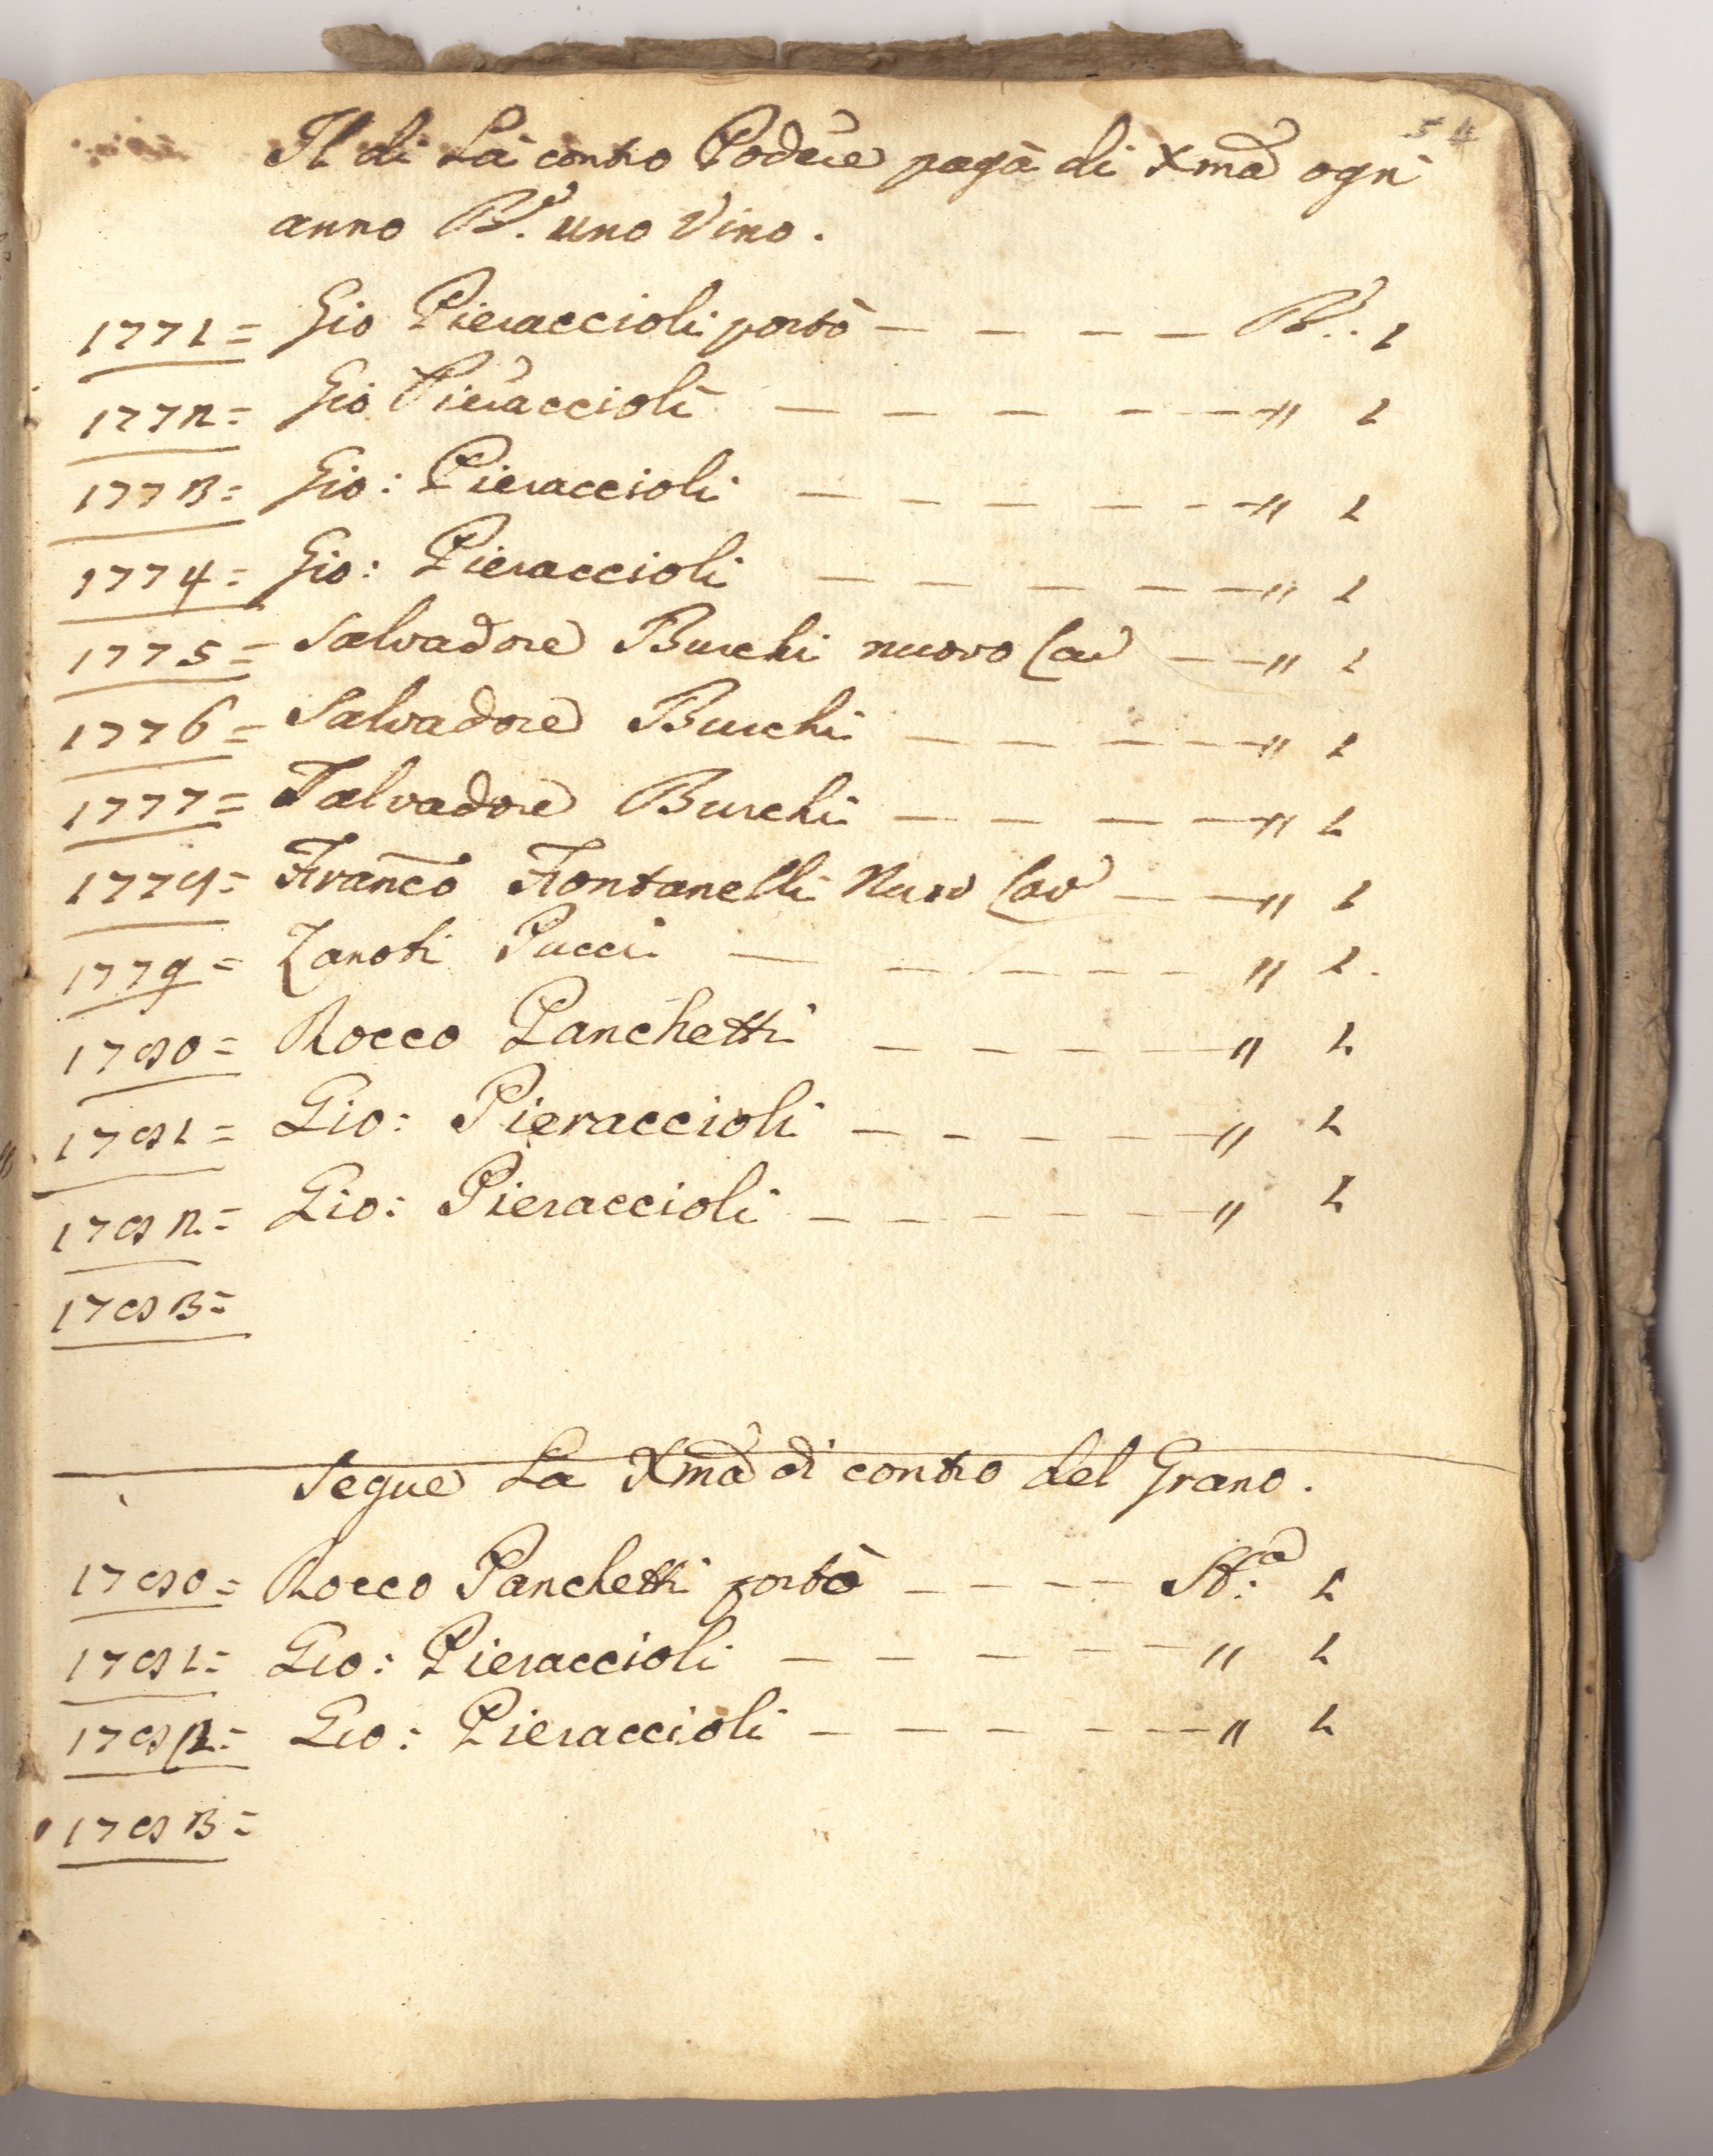 54
Il di Là contro Podere paga di Xma ogni
anno B.e uno Vino.
1771= Gio Pieraccioli portò — — — — B.e 1
1772= Gio Pieraccioli — — — — — " 1
1773= Gio: Pieraccioli — — — — — " 1
1774= Gio: Pieraccioli — — — — — " 1
1775= Salvadore Burchi nuovo Lav — — " 1
1776= Salvadore Burchi — — — — " 1
1777= Salvadore Burchi — — — — " 1
1779= Franco Fontanelli Nuvo Lav — — " 1
1779= Zanobi Pucci — — — — — " 1.
1780= Rocco Panchetti — — — — " 1
1781= Gio: Pieraccioli — — — — — " 1
1782= Gio: Pieraccioli — — — — — " 1
1783=
Segue La Xma di contro del Grano.
1780= Rocco Panchetti portò — — — — St.a 1
1781= Gio: Pieraccioli — — — — — " 1
1782= Gio: Pieraccioli — — — — — " 1
1783=